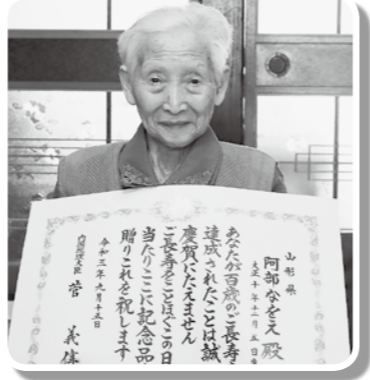 山形県
阿部なをえ 殿
大正十年十一月五日生
あなたが百歳のご長寿を
達成されたことは誠に
慶賀にたえません
ご長寿をことほぐこの日に
当たりここに記念品を
贈りこれを祝します
令和三年九月十五日
内閣総理大臣 菅 義偉